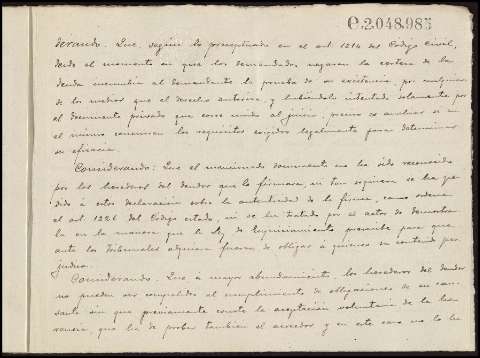 C.2.048.985
derando. Que, según lo preceptuado en el art 1214 del Código Civil,
desde el momento en que los demandados negaron la certeza de la
deuda incumbía al demandante la prueba de su existencia, por cualquiera
de los medios que el derecho autoriza y habiéndolo intentado solamente por
el documento privado que corre unido al juicio, preciso es analizar si en
el mismo concurren los requisitos exigidos legalmente para determinar
su eficacia.
Considerando: Que el mencionado documento no ha sido reconocido
por los herederos del deudor que lo firmara, ni tan siquiera se ha pe
dido á estos declaración sobre la autenticidad de la firma, como ordena
el art 1226 del Código citado, ni se ha tratado por el actor de demostrar
la en la manera que la ley de Enjuiciamiento previene para que
ante los Tribunales adquiera fuerza de obligar á quienes su contenido per
judica.
Considerando. Que á mayor abundamiento, los herederos del deudor
no pueden ser compelidos al cumplimiento de obligaciones de su cau
sante sin que previamente conste la aceptación voluntaria de la he
rencia, que ha de probar tambien el acreedor y en este caso no lo he